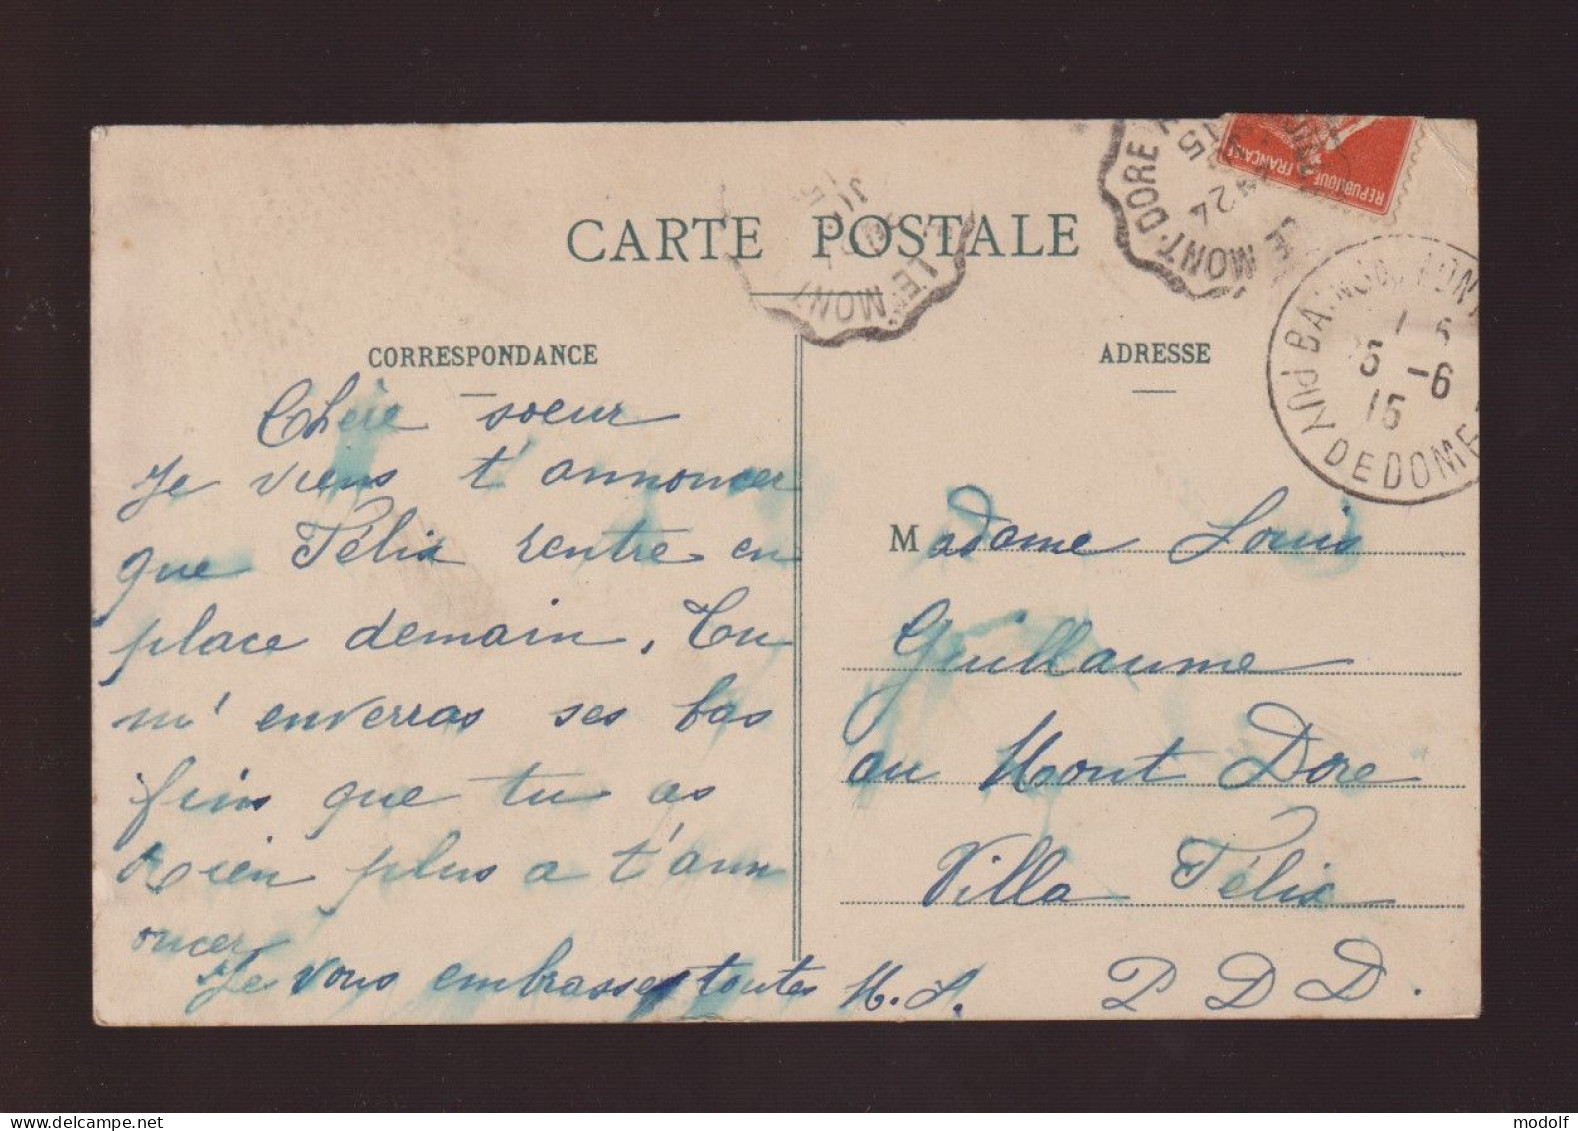 CARTE POSTALE
CORRESPONDANCE
Chère soeur
Je viens t'annoncer
que Félix rentre en
place demain. Tu
m'enverras ses bas
fins que tu as
Rien plus a t'ann
oncer
Je vous embrasse toutes M. A.
ADRESSE
Madame Louis
Guillaume
au Mont Dore
Villa Félix
P D D.
REPUBLIQUE FRANCAISE
LE MONT-DORE
24
15
LE MONT
JUI
15
PUY DE DOME
5 -6
15
modolf